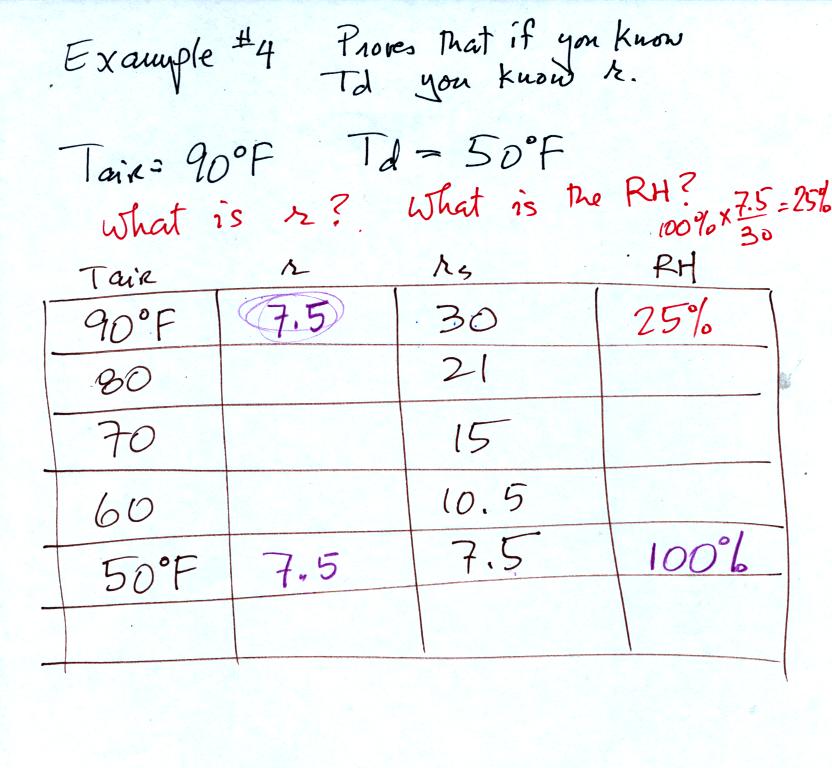 Example #4 Proves that if you know
Td you know r.
Tair = 90°F Td = 50°F
What is r? What is the RH?
100% x 7.5/30 = 25%
Tair r rs RH
90°F 7.5 30 25%
80 21
70 15
60 10.5
50°F 7.5 7.5 100%